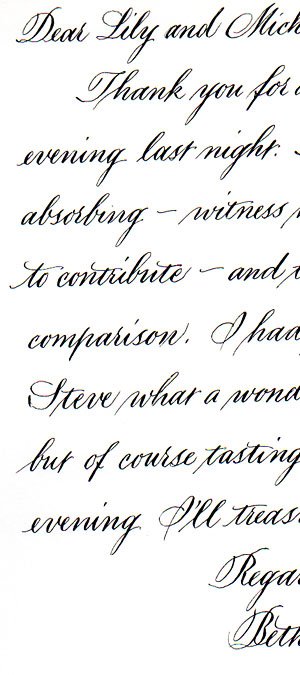 Dear Lily and Mich
Thank you for a
evening last night.
absorbing – witness
to contribute – and
comparison. I had
Steve what a wond
but of course tasting
evening I'll treas
Regar
Beth